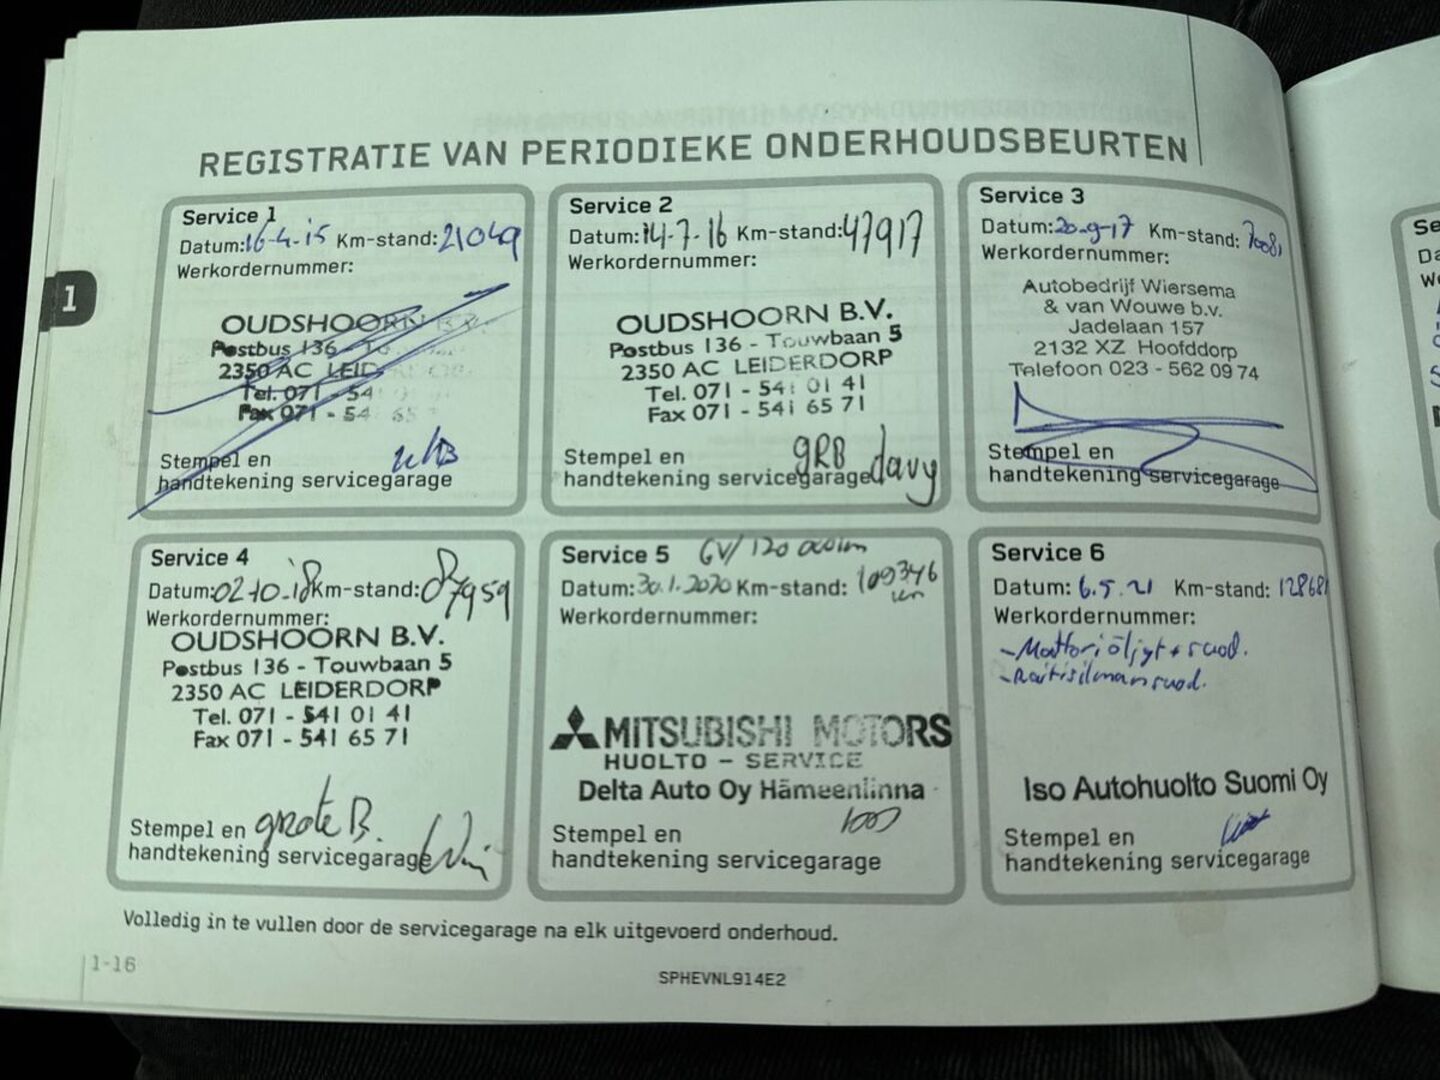 REGISTRATIE VAN PERIODIEKE ONDERHOUDSBEURTEN
1
Service 1
Datum: 16-4-15 Km-stand: 21049
Werkordernummer:
OUDSHOORN B.V.
Postbus 136 - To
2350 AC LEID
Tel. 071 - 54
Fax 071 - 54 65
Stempel en
handtekening servicegarage
Service 2
Datum: 14-7-16 Km-stand: 47917
Werkordernummer:
OUDSHOORN B.V.
Postbus 136 - Touwbaan 5
2350 AC LEIDERDORP
Tel. 071 - 541 01 41
Fax 071 - 541 65 71
Stempel en GRB davy
handtekening servicegarage
Service 3
Datum: 20-9-17 Km-stand: 7008
Werkordernummer:
Autobedrijf Wiersema
& van Wouwe b.v.
Jadelaan 157
2132 XZ Hoofddorp
Telefoon 023 - 562 09 74
Stempel en
handtekening servicegarage
Service 4
Datum: 02-10-18 Km-stand: 87959
Werkordernummer:
OUDSHOORN B.V.
Postbus 136 - Touwbaan 5
2350 AC LEIDERDORP
Tel. 071 - 541 01 41
Fax 071 - 541 65 71
Stempel en grote B.
handtekening servicegarage
Service 5 GV/120
Datum: 30.1.2020 Km-stand: 109346
km
Werkordernummer:
MITSUBISHI MOTORS
HUOLTO - SERVICE
Delta Auto Oy Hämeenlinna
Stempel en
handtekening servicegarage
Service 6
Datum: 6.5.21 Km-stand: 128681
Werkordernummer:
- Moottoriöljyt + suod.
- Raitisilmansuod.
Iso Autohuolto Suomi Oy
Stempel en
handtekening servicegarage
Volledig in te vullen door de servicegarage na elk uitgevoerd onderhoud.
1-16
SPHEVNL914E2